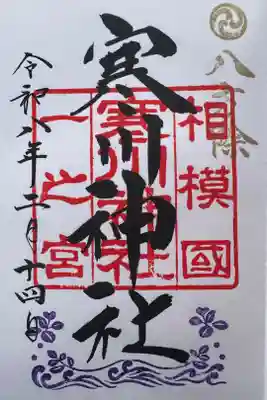 八方除
相模國
寒川神社
寒川神社
一之宮
令和八年二月十四日